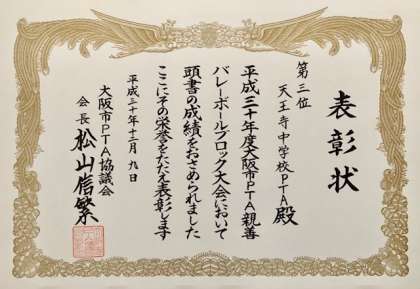 表彰状
第三位
天王寺中学校PTA殿
平成三十年度大阪市PTA親善
バレーボールブロック大会において
頭書の成績をおさめられました
ここにその栄誉をたたえ表彰します
平成三十年十二月九日
大阪市PTA協議会
会長 松山信繁